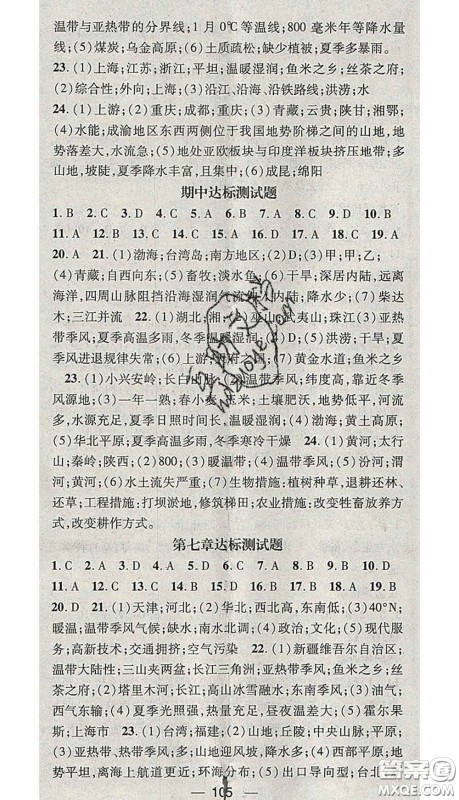 温带与亚热带的分界线;1月0℃等温线;800毫米年等降水量
线;(5)煤炭;乌金高原;(6)土质疏松;缺少植被;夏季多暴雨。
23.(1)上海;江苏;浙江;平坦;温暖湿润;鱼米之乡;丝茶之府;
(2)综合性;外向;(3)沿江、沿海、沿铁路线;洪涝;水
24.(1)上游;(2)重庆;成都;重庆;(3)青藏;云贵;陕甘;湘鄂;
(4)水能;成渝地区东西两侧位于我国地势阶梯之间的山地,地
势落差大,水流急;(5)地处亚欧板块与印度洋板块挤压地带;多
山地,坡陡,夏季降水丰富,且集中;(6)成昆;绵阳
期中达标测试题
1.B 2.C 3.D 4.C 5.B 6.C 7.D 8.D 9.D 10.B
11.A 12.C 13.C 14.B 15.C 16.C 17.C 18.D 19.A
20.A 21.(1)渤海;台湾岛;南方地区;(2)D;(3)甲;乙;
(4)青藏;东南;(5)畜牧;淡水鱼;(6)干旱;深居内陆,远离
海洋,四周山脉阻挡沿海湿润气流深入内地,降水少;(7)柴达
木;三江并流 22.(1)湖北;湘;(2)巫山;武夷山;珠江;(3)亚
热带季风;夏季高温多雨,冬季温暖湿润;(4)D;(5)洪涝;干旱;夏
季风进退规律失常;(6)上海;政府;(7)黄金水道;鱼米之乡
23.(1)小兴安岭;长白山脉;(2)温带季风;纬度高,靠近冬季
风源地;(3)一年一熟;春小麦、玉米;土壤肥沃,地势低平,河流
多,水源充足,夏季日照时间长,雨热同期;(4)渤海;黄土高原;
(5)华北平原;夏季高温多雨,冬季寒冷干燥 24.(1)黄河;太行
山;秦岭;陕西;(2)800;(3)暖温带;(4)温带季风;(5)汾河;渭
河;黄河;(6)水土流失严重;(7)生物措施:植树种草,退耕还林、
还草;工程措施:打坝淤地,修筑梯田;农业措施:改变牲畜放养方
式,改变耕作方式。
第七章达标测试题
1.C 2.C 3.D 4.A 5.B 6.D 7.B 8.D 9.D 10.C
11.A 12.D 13.C 14.B 15.B 16.D 17.B 18.A 19.B
20.D 21.(1)天津;河北;(2)华北;西北高,东南低;(3)40°N;
暖温;温带季风气候;缺水;南水北调;(4)政治;文化;(5)现代服
务;高新技术;交通拥挤;空气污染 22.(1)新疆维吾尔自治区;
温带大陆性;三山夹两盆;长江三角洲;亚热带季风;鱼米之乡;丝
茶之府;(2)塔里木河;长江;高山冰雪融水;大气降水;(3)油气;
西气东输;(4)夏季光照强,热量充足,昼夜温差大;(5)霍尔果
斯;上海市 23.(1)台湾;福建;(2)山地;丘陵;中央山脉;平原;
(3)亚热带、热带季风;雨热同期;(4)地势平坦;地处东部沿海地
区,离离海上航道更近;环海分布;(5)出口导向型;台北
105